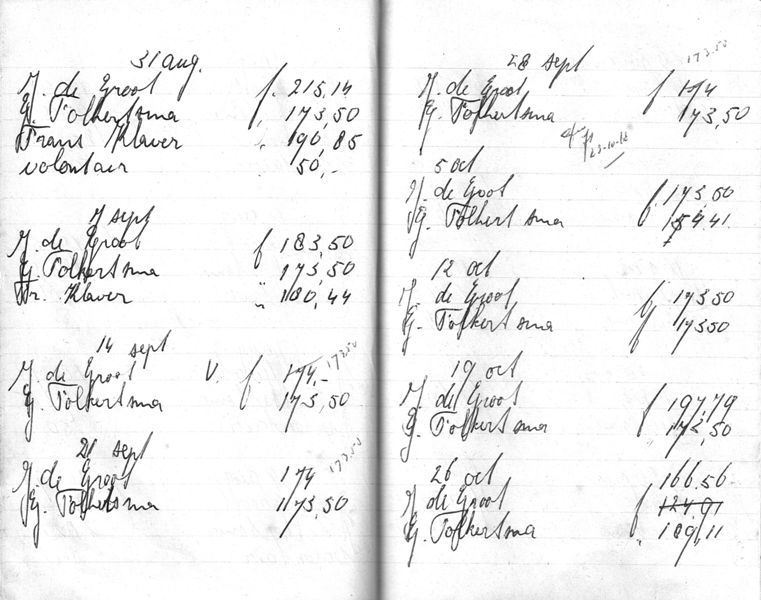 31 aug.
H. de Groot f. 215,14
G. Tolkertsma " 173,50
Frans Klaver " 190,85
volontair " 50,-
7 sept
H. de Groot f 183,50
G. Tolkertsma " 173,50
Fr. Klaver " 180,44
14 sept 173.50
H. de Groot V. f 174,-
G. Tolkertsma " 173,50
21 sept 173.50
H. de Groot 174
G. Tolkertsma 173,50
28 sept 173.50
H. de Groot f 174
G. Tolkertsma 173,50
5 oct
H. de Groot f. 173,50
G. Tolkertsma f. 154,41
12 oct
H. de Groot f 173,50
G. Tolkertsma f 173,50
19 oct
H. de Groot f 197,79
G. Tolkertsma " 173,50
26 oct 166.56
H. de Groot f 124,91
G. Tolkertsma " 189,11